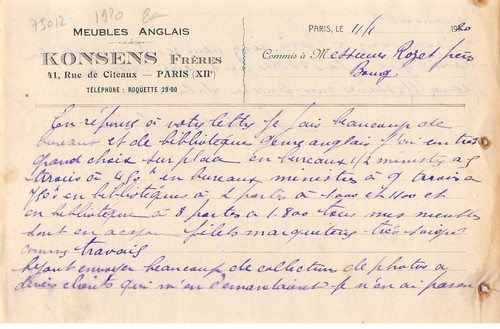 75012 1920
MEUBLES ANGLAIS
KONSENS FRÈRES
41, Rue de Citeaux — PARIS (XIIe)
TÉLÉPHONE: ROQUETTE 29-00
PARIS, LE 11/1 1920
Commis à Messieurs Rozet frère
Bourg
En réponse a votre lettre je fais beaucoup de
bureaux et de biblioteque genre anglais j'ai un tres
grand choix sur place en bureaux 1/2 ministre a 5
tiroirs a 450f en bureaux ministres a 9 tiroirs a
750f en biblioteques a 2 portes a 1000 et 1100 et
en biblioteque a 3 portes a 1.800 tous mes meubles
sont en acajou filets marqueterie très soignés
comme travail
Ayant envoyer beaucoup de collection de photos a
divers clients qui m'en demandaient je n'en ai pas en